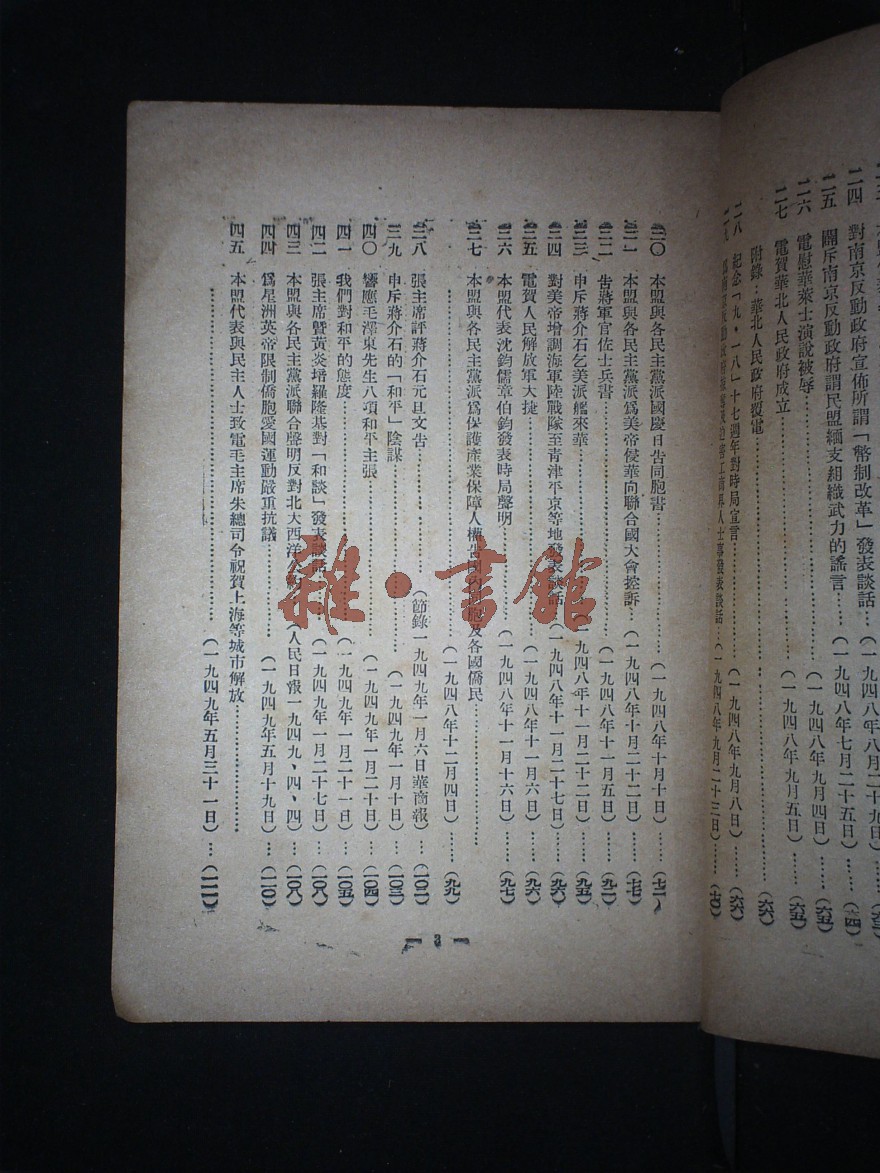 二四 對南京反動政府宣佈所謂「幣制改革」發表談話……(一九四八年八月二十九日)……
二五 闢斥南京反動政府謂民盟緬支組織武力的謠言……(一九四八年七月二十五日)……(六四)
二六 電慰華萊士演說被辱……(一九四八年九月四日)……(六五)
二七 電賀華北人民政府成立……(一九四八年九月五日)……(六五)
附錄:華北人民政府覆電……(六六)
二八 紀念「九·一八」十七週年對時局宣言……(一九四八年九月八日)……(六六)
工商界人士事發表談話……(一九四八年九月二十三日)……(七〇)
三〇 本盟與各民主黨派國慶日告同胞書……(一九四八年十月十日)……(七二)
三一 本盟與各民主黨派爲美帝侵華向聯合國大會控訴……(一九四八年十月二十二日)……(七七)
三二 告蔣軍官佐士兵書……(一九四八年十一月五日)……(九二)
三三 申斥蔣介石乞美派艦來華……(一九四八年十一月二十二日)……(九五)
三四 對美帝增調海軍陸戰隊至青津平京等地發表談話……(一九四八年十一月二十七日)……(九六)
三五 電賀人民解放軍大捷……(一九四八年十一月六日)……(九六)
三六 本盟代表沈鈞儒章伯鈞發表時局聲明……(一九四八年十一月十六日)……(九七)
三七 本盟與各民主黨派爲保護產業保障人權告國內同胞及各國僑民……
……(一九四八年十二月四日)……(九九)
三八 張主席評蔣介石元旦文告……(節錄一九四九年一月六日華商報)……(一〇二)
三九 申斥蔣介石的「和平」陰謀……(一九四九年一月十日)……(一〇三)
四〇 響應毛澤東先生八項和平主張……(一九四九年一月二十日)……(一〇四)
四一 我們對和平的態度……(一九四九年一月二十一日)……(一〇五)
四二 張主席暨黃炎培羅隆基對「和談」發表談話……(一九四九年一月二十七日)……(一〇八)
四三 本盟與各民主黨派聯合聲明反對北大西洋公約……(人民日報一九四九、四、四)……(一〇八)
四四 爲星洲英帝限制僑胞愛國運動嚴重抗議……(一九四九年五月十九日)……(一一〇)
四五 本盟代表與民主人士致電毛主席朱總司令祝賀上海等城市解放……
……(一九四九年五月三十一日)……(一一一)
3
雜·書館